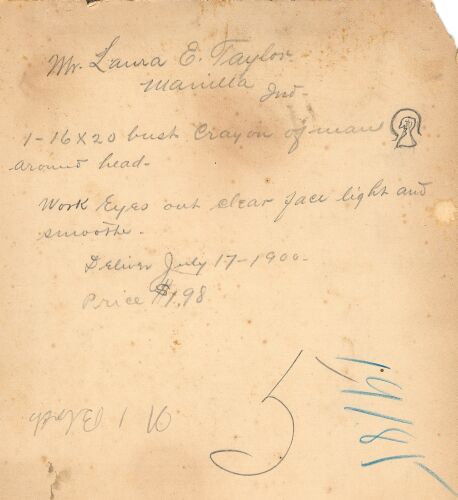 Mr. Laura E. Taylor
Manilla
Ind-
1-16x20 bust Crayon of man
around head-
Work Eyes out clear face light and
smooth-
Deliver July 17-1900-
Price $1.98
5